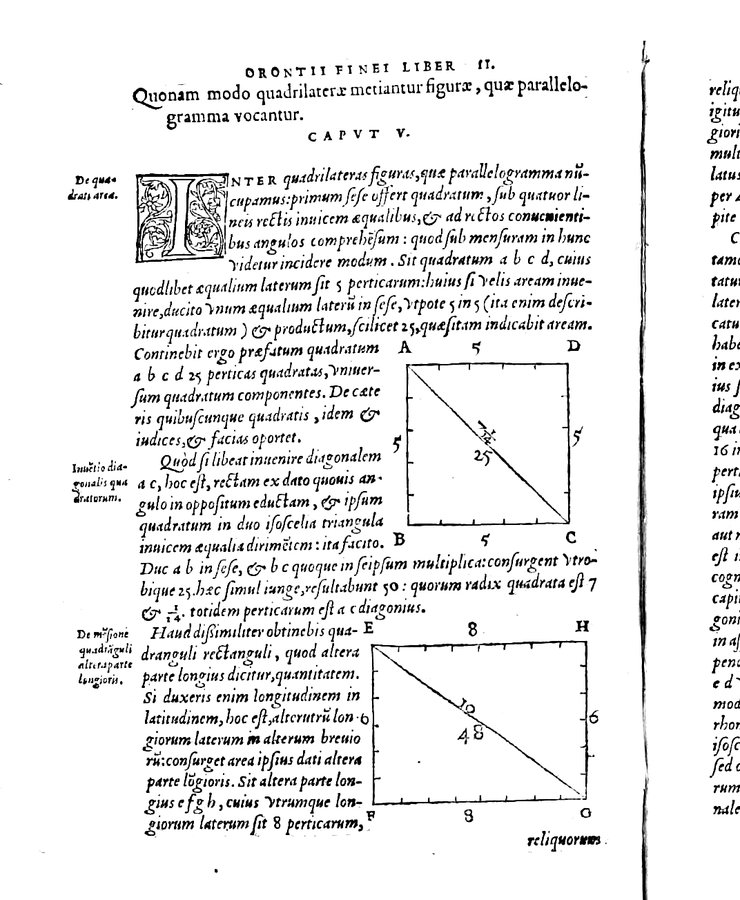 ORONTII FINEI LIBER II.
Quonam modo quadrilateræ metiantur figuræ, quæ parallelo-
gramma vocantur.
CAPVT V.
De qua-
drati area.
INTER quadrilateras figuras, quæ parallelogramma nũ-
cupamus: primum sese offert quadratum, sub quatuor li-
neis rectis inuicem æqualibus, & ad rectos conuenienti-
bus angulos comprehẽsum: quod sub mensuram in hunc
videtur incidere modum. Sit quadratum a b c d, cuius
quodlibet æqualium laterum sit 5 perticarum: huius si velis aream inue-
nire, ducito vnum æqualium laterũ in sese, vtpote 5 in 5 (ita enim descri-
bitur quadratum) & productum, scilicet 25, quæsitam indicabit aream.
Continebit ergo præfatum quadratum
a b c d 25 perticas quadratas, vniuer-
sum quadratum componentes. De cæte
ris quibuscunque quadratis, idem &
iudices, & facias oportet.
A 5 D
5 7 1/14 25 5
B 5 C
Inuẽtio dia-
gonalis qua
dratorum.
Quòd si libeat inuenire diagonalem
a c, hoc est, rectam ex dato quouis an-
gulo in oppositum eductam, & ipsum
quadratum in duo isoscelia triangula
inuicem æqualia dirimẽtem: ita facito.
Duc a b in sese, & b c quoque in seipsum multiplica: consurgent vtro-
bique 25. hæc simul iunge, resultabunt 50: quorum radix quadrata est 7
& 1/14. totidem perticarum est a c diagonius.
De mẽsione
quadrãguli
altera parte
longioris.
Haud dissimiliter obtinebis qua-
dranguli rectanguli, quod altera
parte longius dicitur, quantitatem.
Si duxeris enim longitudinem in
latitudinem, hoc est, alterutrũ lon-
giorum laterum in alterum breuio
rũ: consurget area ipsius dati altera
parte lõgioris. Sit altera parte lon-
gius e f g h, cuius vtrumque lon-
giorum laterum sit 8 perticarum,
E 8 H
6 10 48 6
F 8 G
reliquorum
reliq
igitu
giori
mult
latus
per 4
pite
C
tame
tatur
later
catu
habe
in ex
ius
diag
qua
16 in
perti
ipsiu
ram
aut
est
cogn
capi
goni
in
pend
e d
mod
rhor
isosc
sed
rum
nale